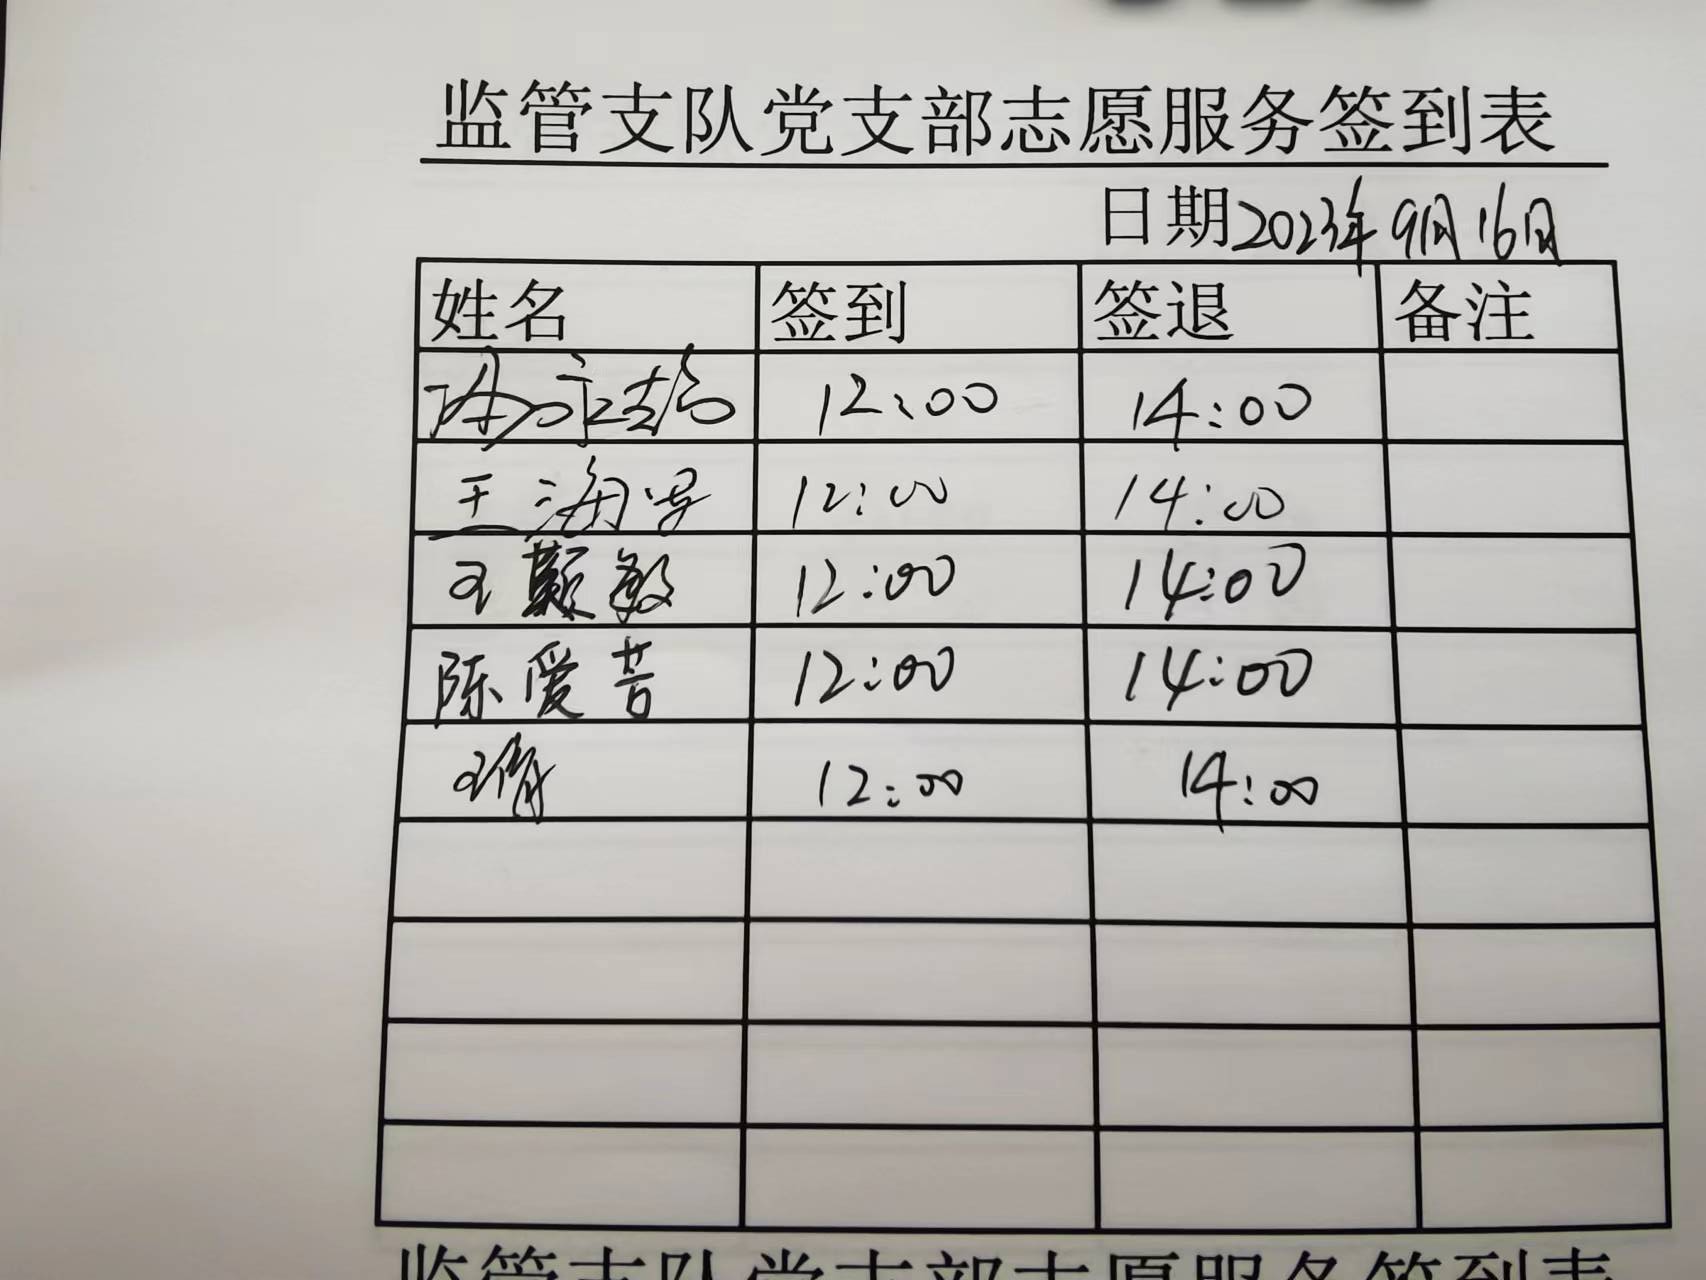 监管支队党支部志愿服务签到表
日期2023年9月16日
姓名 签到 签退 备注
12:00 14:00
王海 12:00 14:00
王颖敏 12:00 14:00
陈爱芸 12:00 14:00
王倩 12:00 14:00
监管支队党支部志愿服务签到表